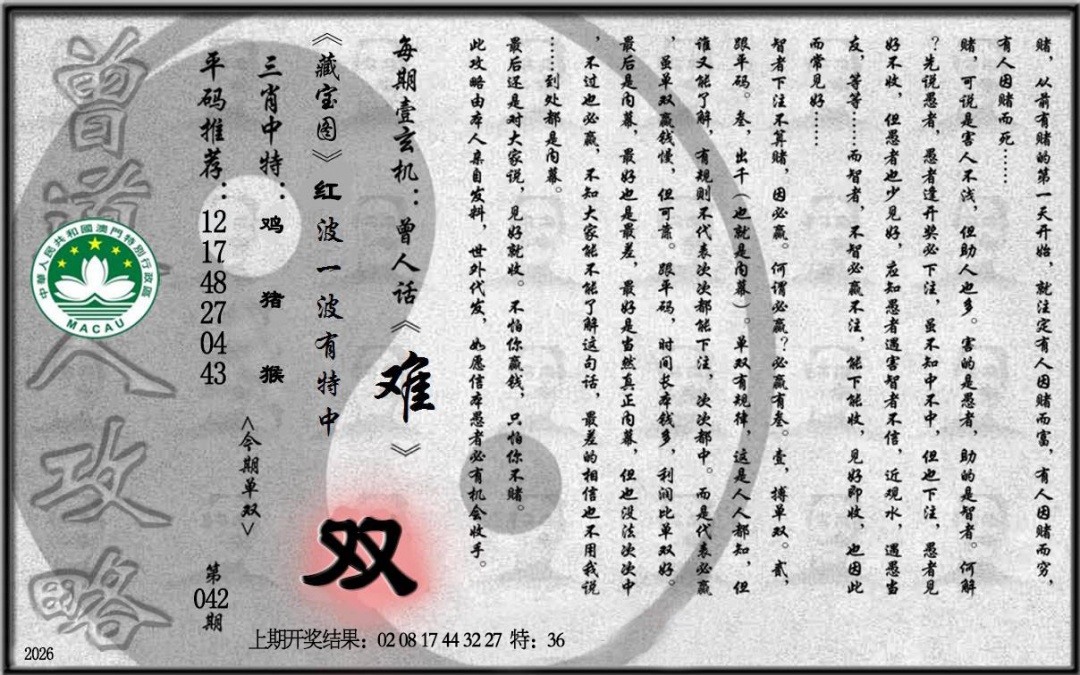 赌，从前有赌的第一天开始，就注定有人因赌而富，有人因赌而穷，
有人因赌而死……
赌，可说是害人不浅，但助人也多。害的是愚者，助的是智者。何解
？先说愚者，愚者逢开奖必下注，虽不知中不中，但也下注，愚者见
好不收，但愚者也少见好，应知愚者遇害智者不信，近观水，遇愚当
友，等等……而智者，不智必赢不注，能下能收，见好即收，也因此
而常见好……
智者下注不算赌，因必赢。何谓必赢？必赢有叁。壹，搏单双。贰，
跟平码。叁，出千（也就是内幕）。单双有规律，这是人人都知，但
谁又能了解，有规则不代表次次都能下注，次次都中。而是代表必赢
，虽单双赢钱慢，但可靠。跟平码，时间长本钱多，利润比单双好。
最后是内幕，最好也是最差，最好是当然真正内幕，但也没法次次中
，不过也必赢，不知大家能不能了解这句话，最差的相信也不用我说
……到处都是内幕。
最后还是对大家说，见好就收。不怕你赢钱，只怕你不赌。
此攻略由本人亲自发料，世外代发，如愿信本愚者必有机会收手。
每期壹玄机：曾人话《难》
《藏宝图》红波一波有特中
双
三肖中特：鸡 猪 猴
<今期单双>
平码推荐：12 17 48 27 04 43
第042期
曾道人攻略
中華人民共和國澳門特別行政區
MACAU
上期开奖结果：02 08 17 44 32 27 特：36
2026